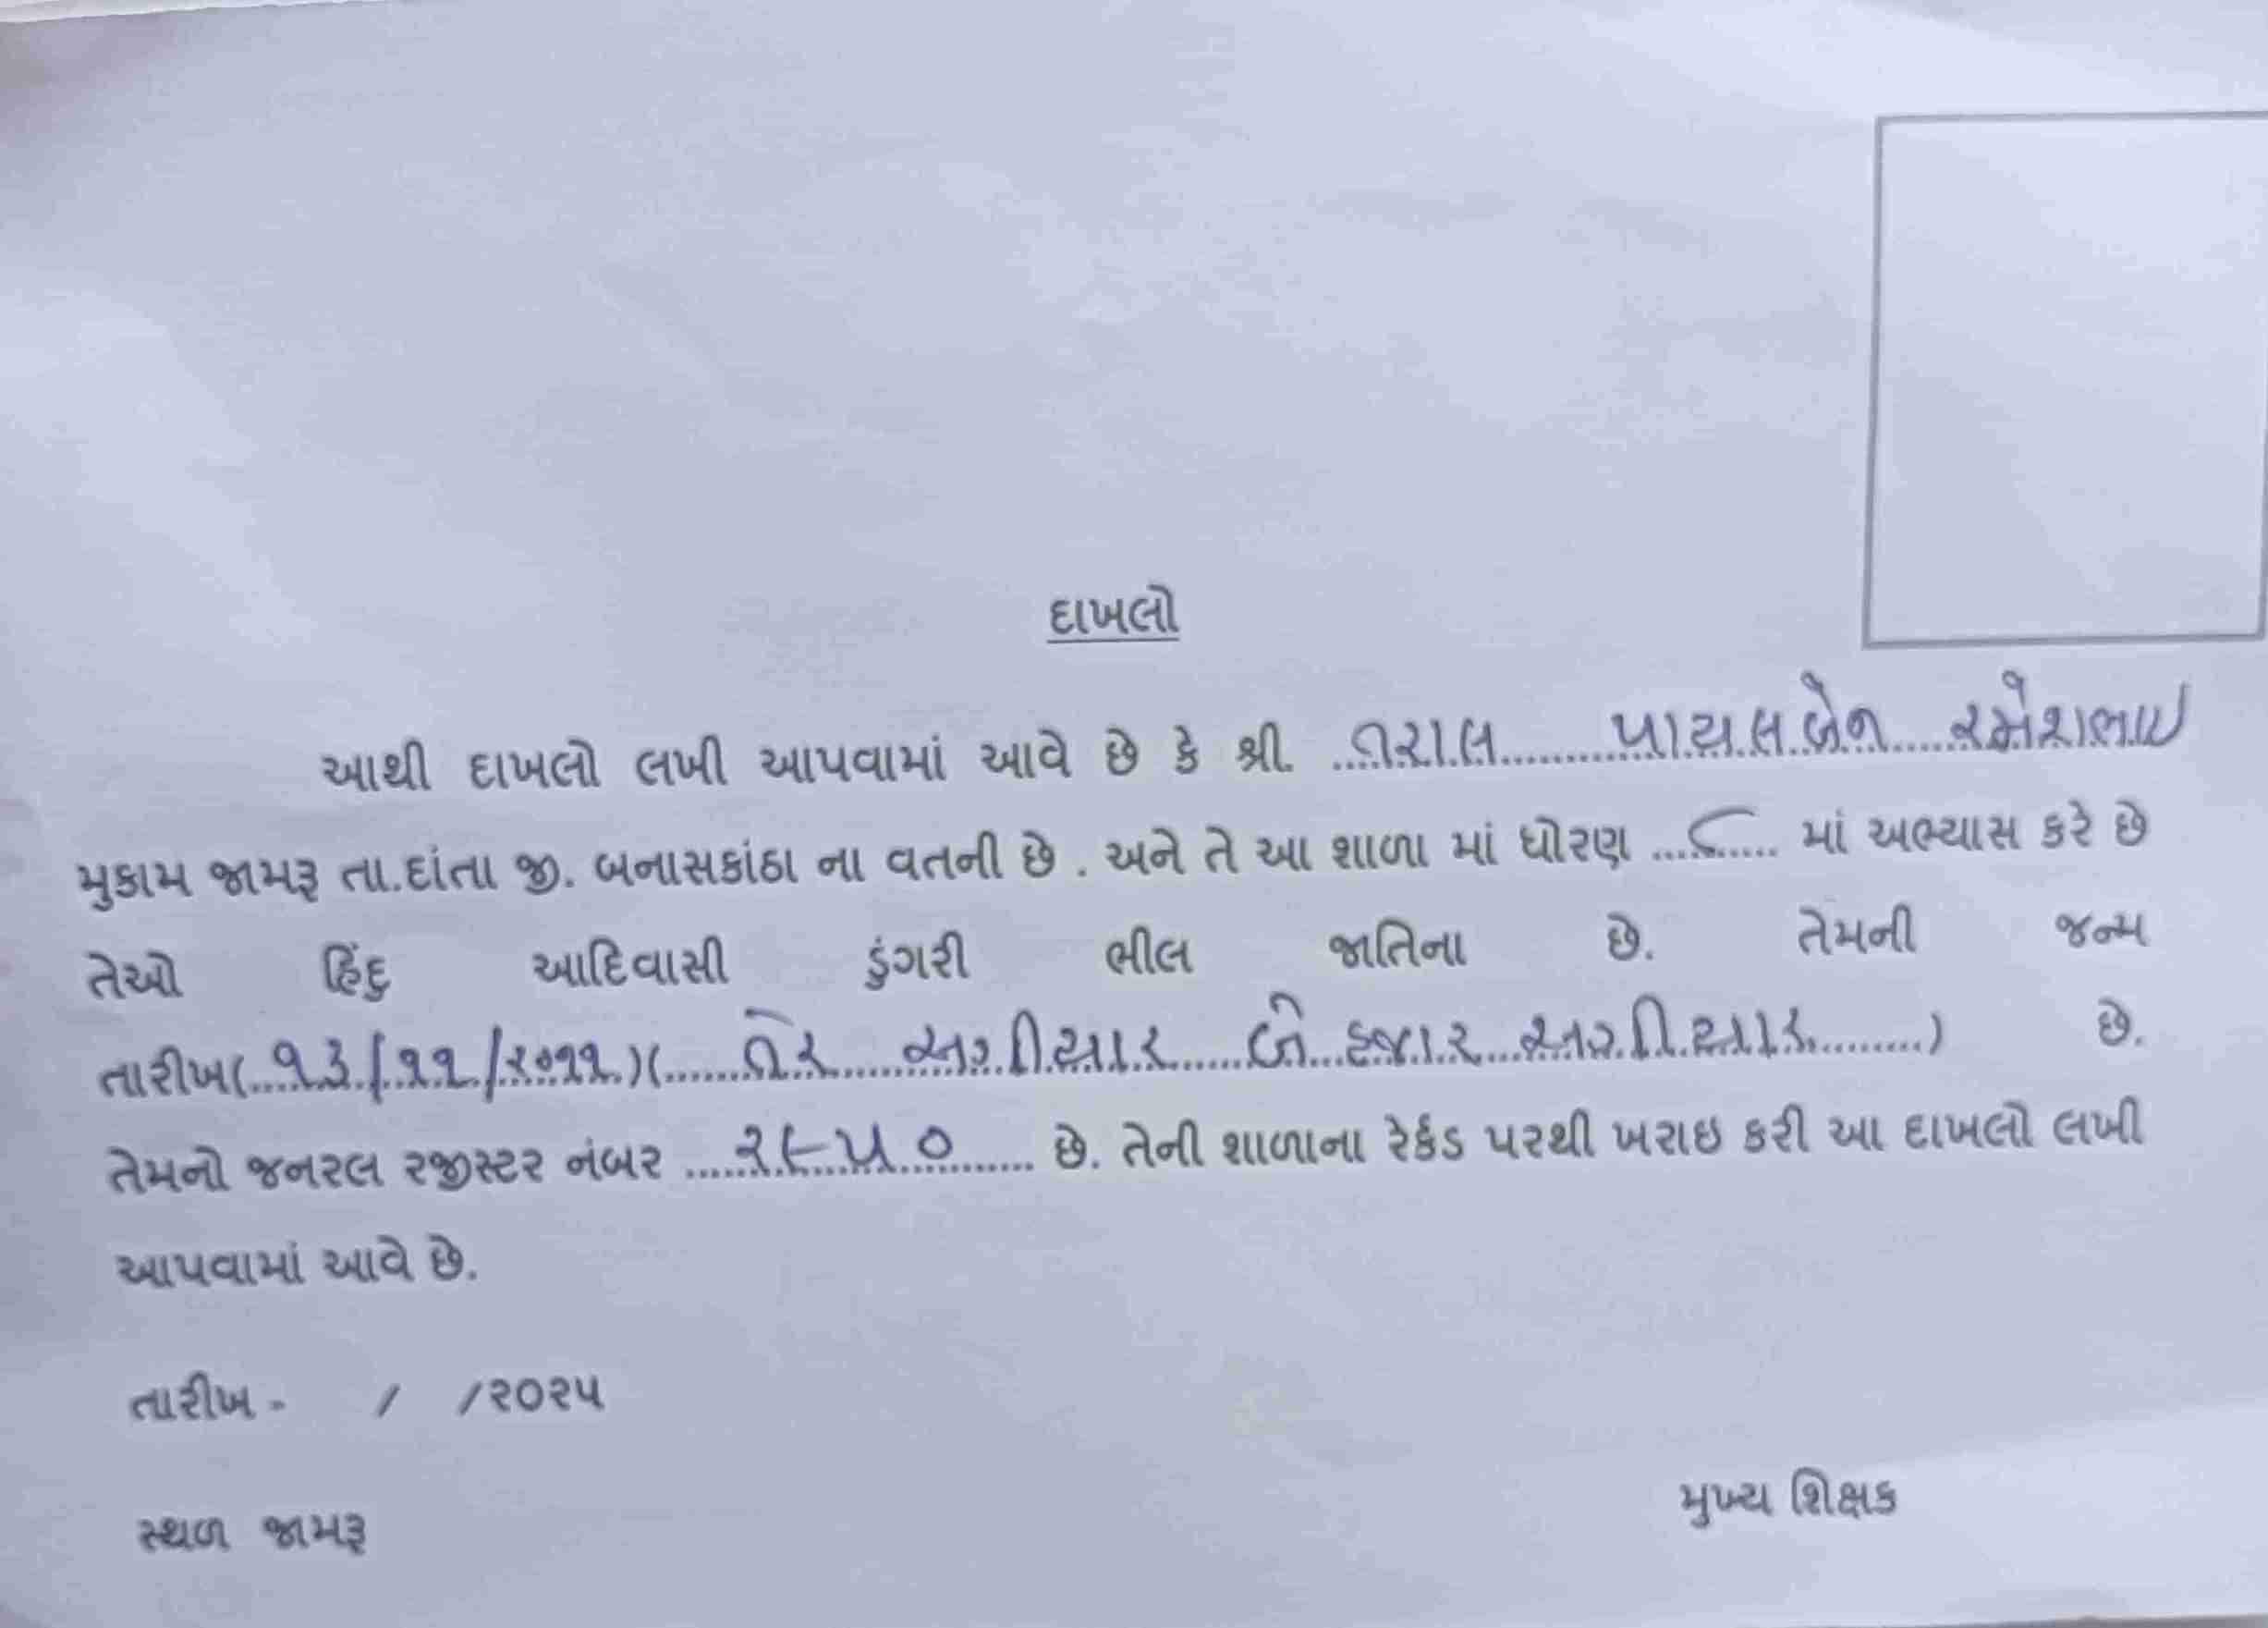 દાખલો
આથી દાખલો લખી આપવામાં આવે છે કે શ્રી. તરાલ પાયલબેન રમેશભાઇ
મુકામ જામરૂ તા.દાંતા જી. બનાસકાંઠા ના વતની છે . અને તે આ શાળા માં ધોરણ ...૮..... માં અભ્યાસ કરે છે
તેઓ હિંદુ આદિવાસી ડુંગરી ભીલ જાતિના છે. તેમની જન્મ
તારીખ(..૧૩/૧૧/૨૦૧૧)(......તેર....અગીયાર.....બે..હજાર..અગીયાર.........) છે.
તેમનો જનરલ રજીસ્ટર નંબર ....૨૯૫૦...... છે. તેની શાળાના રેર્કડ પરથી ખરાઇ કરી આ દાખલો લખી
આપવામાં આવે છે.
તારીખ - / /૨૦૨૫
મુખ્ય શિક્ષક
સ્થળ જામરૂ